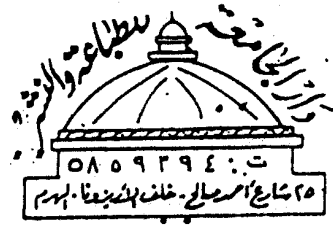 دار الجامعة للطباعة والنشر
ت : ٥٨٥٩٣٩٤
٢٥ شارع أحمد صالح - خلف التليفزيون - الهرم